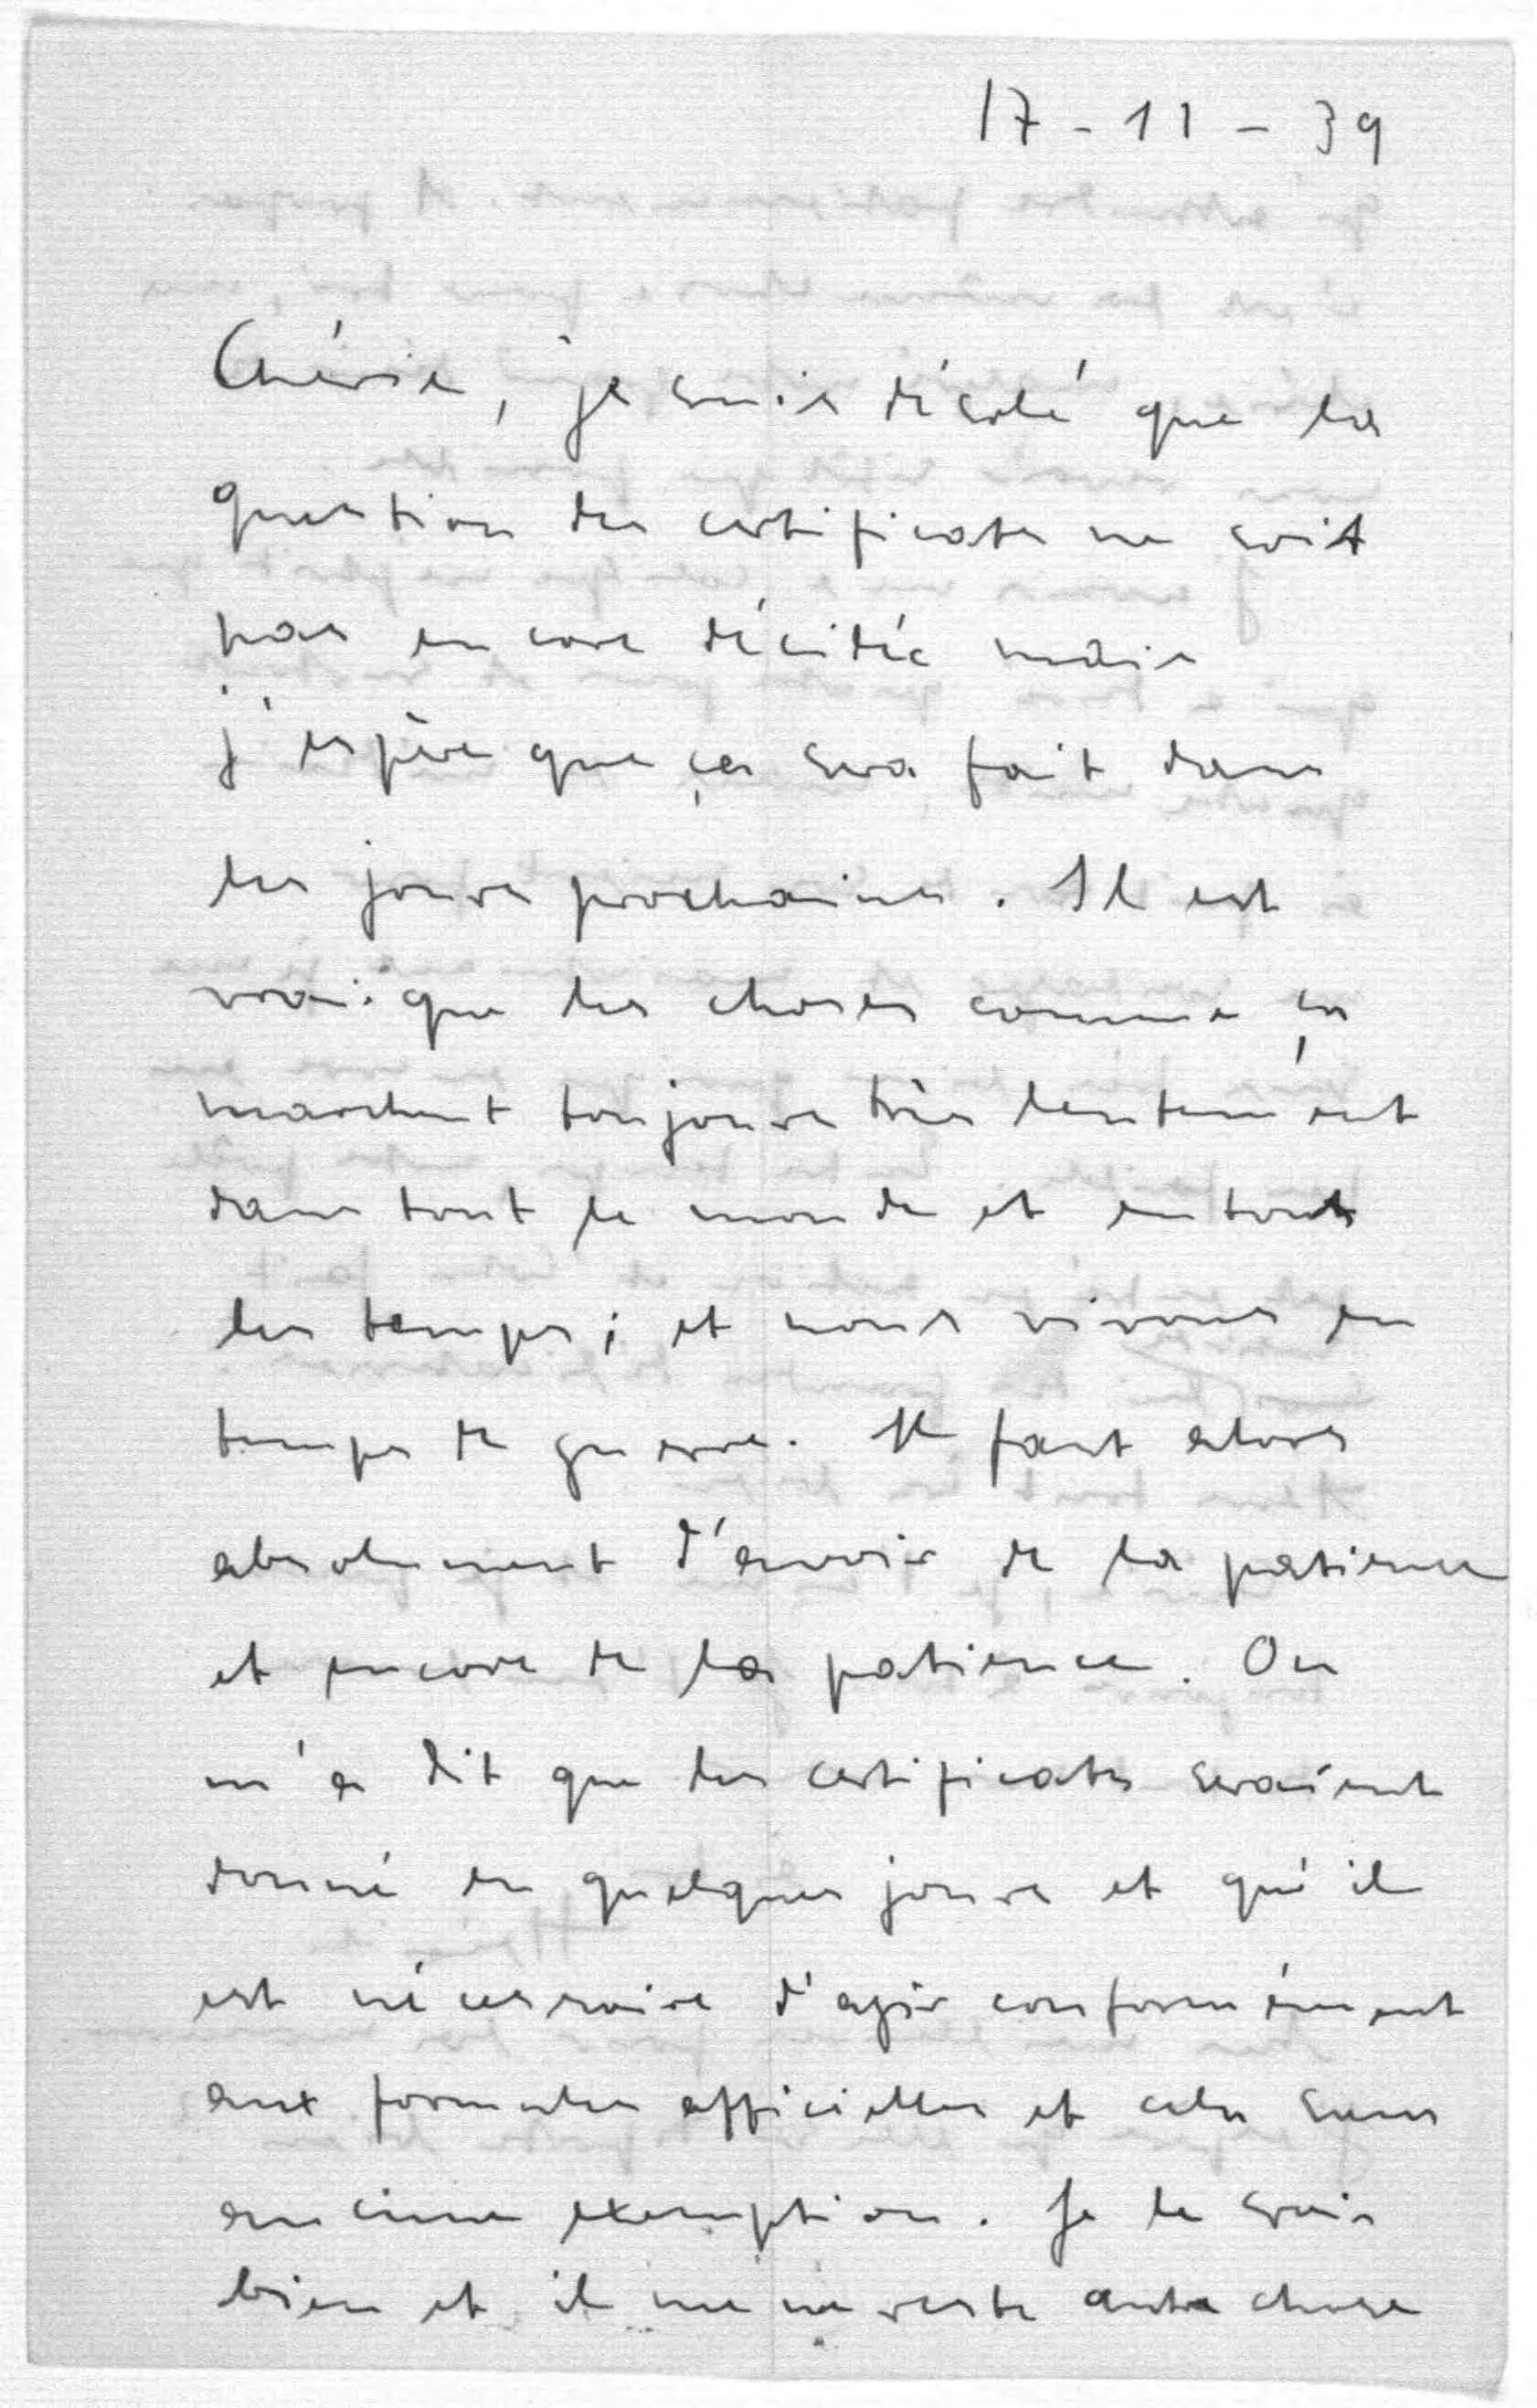 17-11-39
Chérie, je suis désolé que la
question des certificats ne soit
pas encore décidée mais
j'espère que ça sera fait dans
les jours prochaines. Il est
vrai que les choses comme ça
marchent toujours très lentement
dans tout le monde et en tout
les temps; et nous vivons en
temps de guerre. Il faut alors
absolument d'avoir de la patience
et encore de la patience. On
m'a dit que les certificats seraient
donné en quelques jours et qu'il
est nécessaire d'agir conformément
aux formules officielles et cela sans
aucune exemption. Je le sais
bien et il me ne reste autre chose